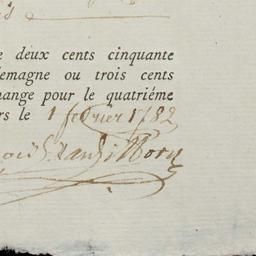 e deux cents cinquante
lemagne ou trois cents
hange pour le quatriéme
rs le 1 fevrier 1782